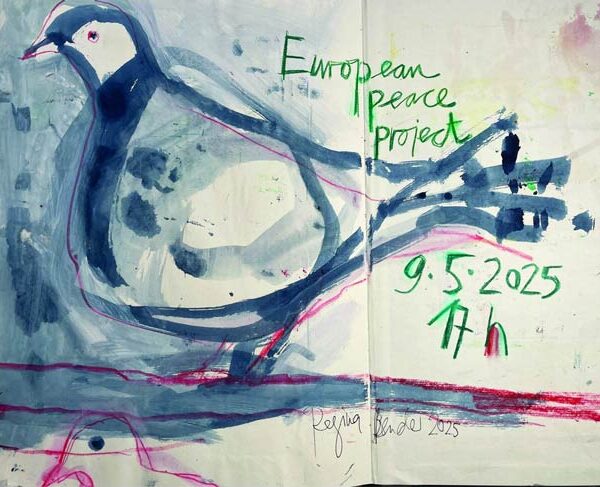 European
peace
project
9.5.2025
17h
Regina Bender 2025